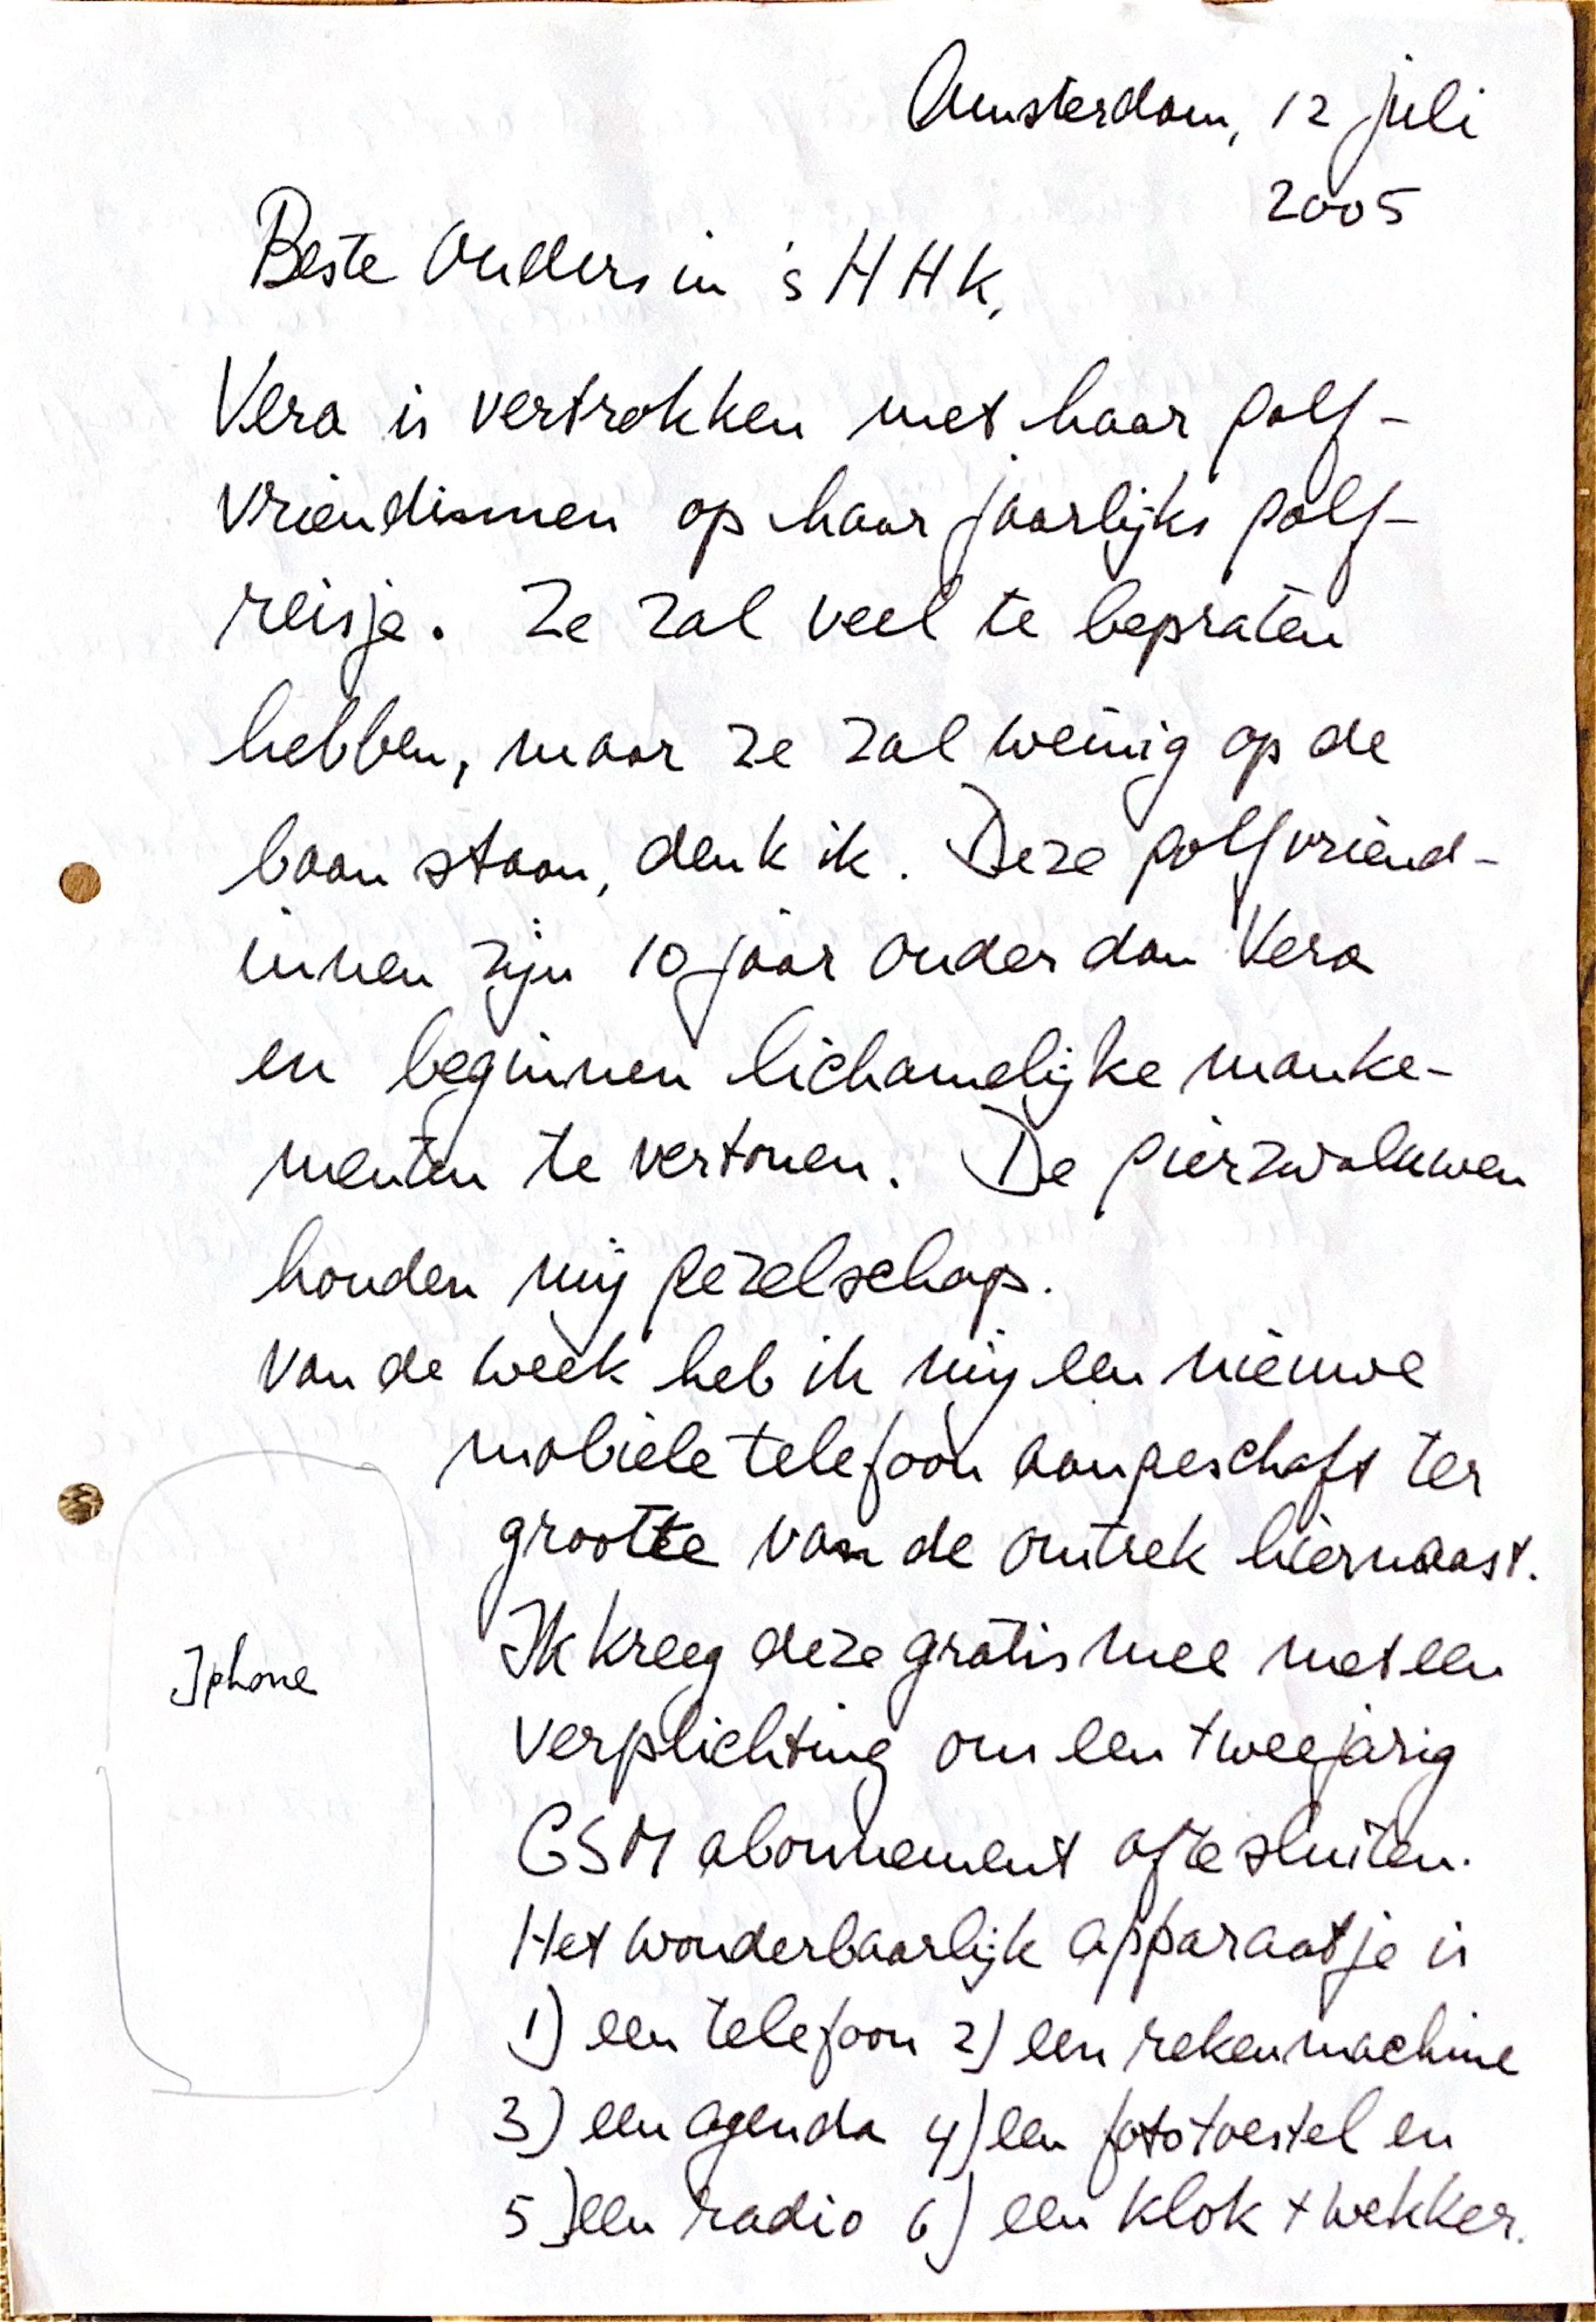 Amsterdam, 12 juli
2005
Beste Ouders in 's HHK,
Vera is vertrokken met haar golf-
vriendinnen op haar jaarlijks golf-
reisje. Ze zal veel te bepraten
hebben, maar ze zal weinig op de
baan staan, denk ik. Deze golfvriend-
innen zijn 10 jaar ouder dan Vera
en beginnen lichamelijke manke-
menten te vertonen. De gierzwaluwen
houden mij gezelschap.
Van de week heb ik mij een nieuwe
mobiele telefoon aangeschaft ter
grootte van de omtrek hiernaast.
Ik kreeg deze gratis mee met een
Iphone
verplichting om een tweejarig
GSM abonnement af te sluiten.
Het wonderbaarlijk apparaatje is
1) een telefoon 2) een rekenmachine
3) een agenda 4) een fototoestel en
5) een radio 6) een klok + wekker.